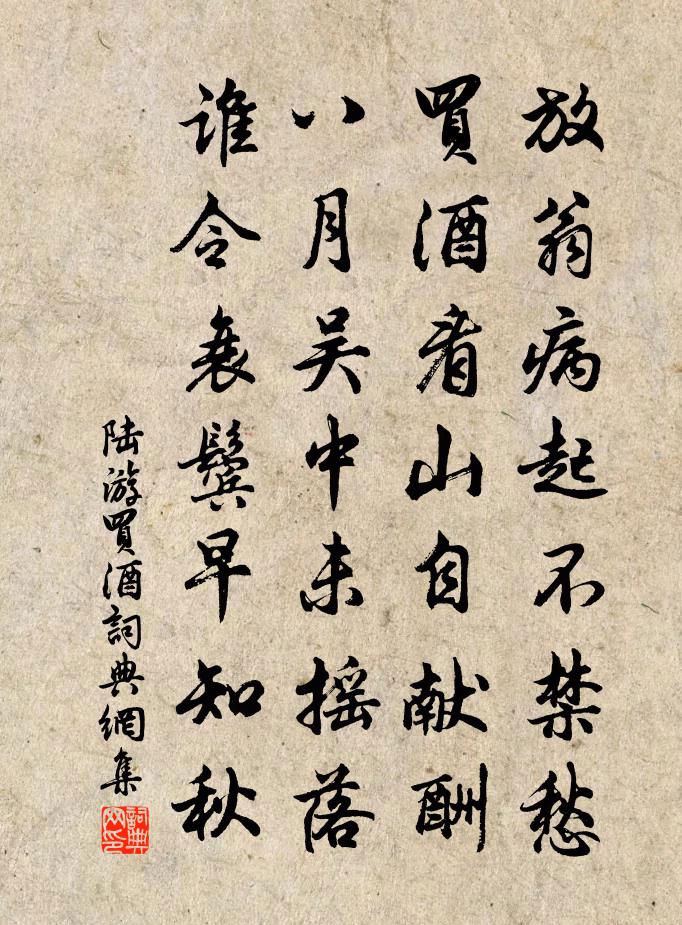 放翁病起不禁愁
買酒看山自献酬
八月吴中未摇落
谁令衰鬓早知秋
陆游買酒詞典網集
詞典网印